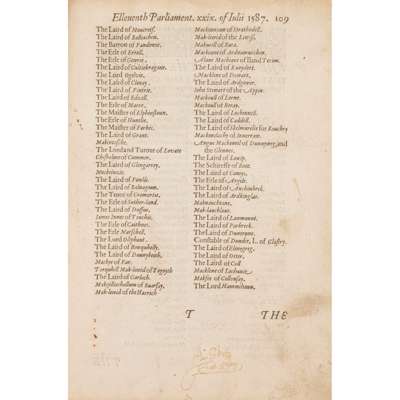 Elleuenth Parliament. xxix. of Iulii 1587. 109
The Laird of
The Laird of Balzachin.
The Barron of Fandowie.
The Erle of Erroll,
The Erle of Gowrie,
The Laird of Cultiebragane.
The Lord Ogilvie,
The Laird of Clovay.
The Laird of Fintrie.
The Laird of Edzell.
The Erle of Marre,
The Maister of Elphinstoun.
The Erle of Huntlie.
The Maister of Forbes.
The Laird of Grant.
Makintosche.
The Lord and Tutour of Lovate
Chisholme of Commer.
The Laird of Glengarrey.
Mackenzie.
The Laird of Foulis.
The Laird of Balnagown.
The Tutor of Cromartie.
The Erle of Suther-land.
The Laird of Duffus,
Iames Innes of Touchis,
The Erle of Caithnes.
The Erle Marschell.
The Lord Oliphant.
The Laird of Boquhally.
The Laird of Dunnybeath,
Macky of Far.
Torquhill Mak-loyid of Toggoyh
The Laird of Garloch.
Makgillechallum of Raarsay,
Mak-loyid of the Harrich
Mackonneun of Strathodell.
Mak-loyid of the Lewiss.
Makneill of Bara.
Mackane of Ardnamurchin.
Allane Mackane of Iland Terum.
The Laird of Knoydert.
Macklane of Dowart,
The Laird of Ardgower.
Iohn Stewart of the Appin.
Mackoull of Lorne.
Mackoull of Roray.
The Laird of Lochinnell.
The Laird of Caddell.
The Laird of Skelmourlie for Rauchry
Mackondachy of Innerraw.
Angus Mackoneil of Dunnyveg, and
the Glennes.
The Laird of Lowip,
The Schireffe of Boot.
The Laird of Camys.
The Erle of Argyle.
The Laird of Auchinbreck.
The Laird of Ardkinglas.
Maknauchtane.
Mak-lauchlane.
The Laird of Lawmont.
The Laird of Perbreck.
The Laird of Duntrune.
Constable of Dundie, L. of Glastry.
The Laird of Elanegreg.
The Laird of Otter,
The Laird of Coll
Macklane of Lochbuie,
Makfee of Collonsay.
The Lord Hammiltoun.
T THE